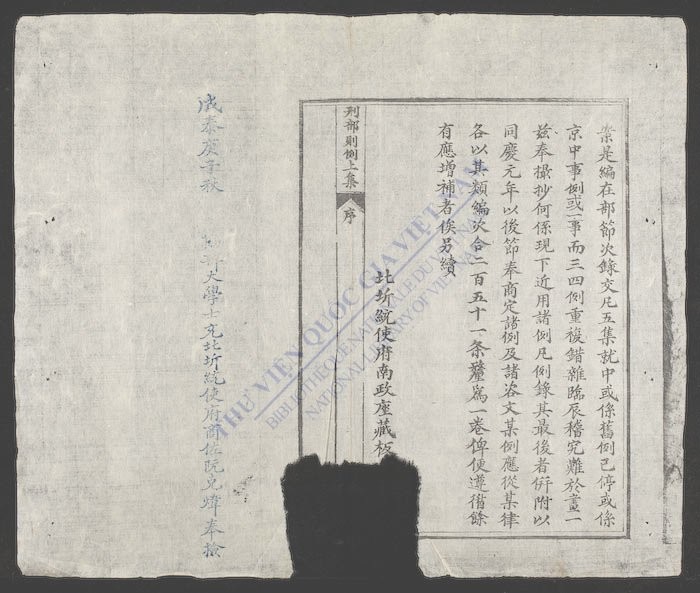 案是編在部節次錄交凡五集就中或係舊例已停或係
京中事例或一事而三四例重複錯雜臨辰稽究難於畫一
茲奉撮抄何係現下近用諸例凡例錄其最後者併附以
同慶元年以後節奉商定諸例及諸咨文某例應從某律
各以其類編次合二百五十一条釐爲一卷俾便遵循餘
有應增補者俟另續
北圻統使府南政座藏板
刑部則例上集
序
成泰庚子秋
大學士充北圻統使府商佐阮克煒奉檢
THƯ VIỆN QUỐC GIA VIỆT NAM
BIBLIOTHÈQUE NATIONALE DU VIETNAM
NATIONAL LIBRARY OF VIETNAM